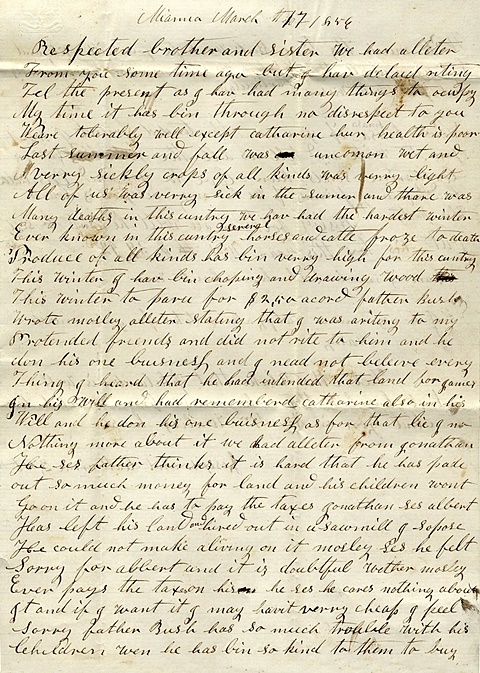 Miamia March th 17 1856
Respected brother and sister we had alleter
From you some time agou but I hav delaid riting
Tel the present as I hav had many things to ocupy
My time it has bin through no disrespect to you
Weare tolerably well except catharine hur health is poor
Last summer and fall was uncomon wet and
A verry sickly crops of all kinds was verry light
All of us was verry sick in the sumer and thare was
Many deaths in this cuntry we hav had the hardest winter
Ever known in this cuntry several horses and catle froze to death
Produce of all kinds has bin verry high for this cuntry
This winter I hav bin choping and drawing wood
This winter to paru for $2,50 acord father Bush
Wrote mosley alleter stating that I was ariting to my
Pretended friends and did not rite to him and he
don his one buisness and I nead not beleive every
Thing I heard that he had intended that land for James
In his Will and had rememberd catharine also in his
Will and he don his one buisness as for that lie I no
Nothing more about it we had alleter from Jonathan
He ses father thinks it is hard that he has pade
out so much money for land and his children wont
Go on it and he has to pay the taxes Jonathan ses albert
Has left his land and hired out in a sawmill I sopose
He could not make aliving on it mosley ses he felt
Sorry for albert and it is doubtful wether mosley
Ever pays the tax on his he ses he cares nothing about
It and if I want it I may havit verry cheap I feel
Sorry father Bush has so much trouble with his
Children wen he has bin so kind to them to buy